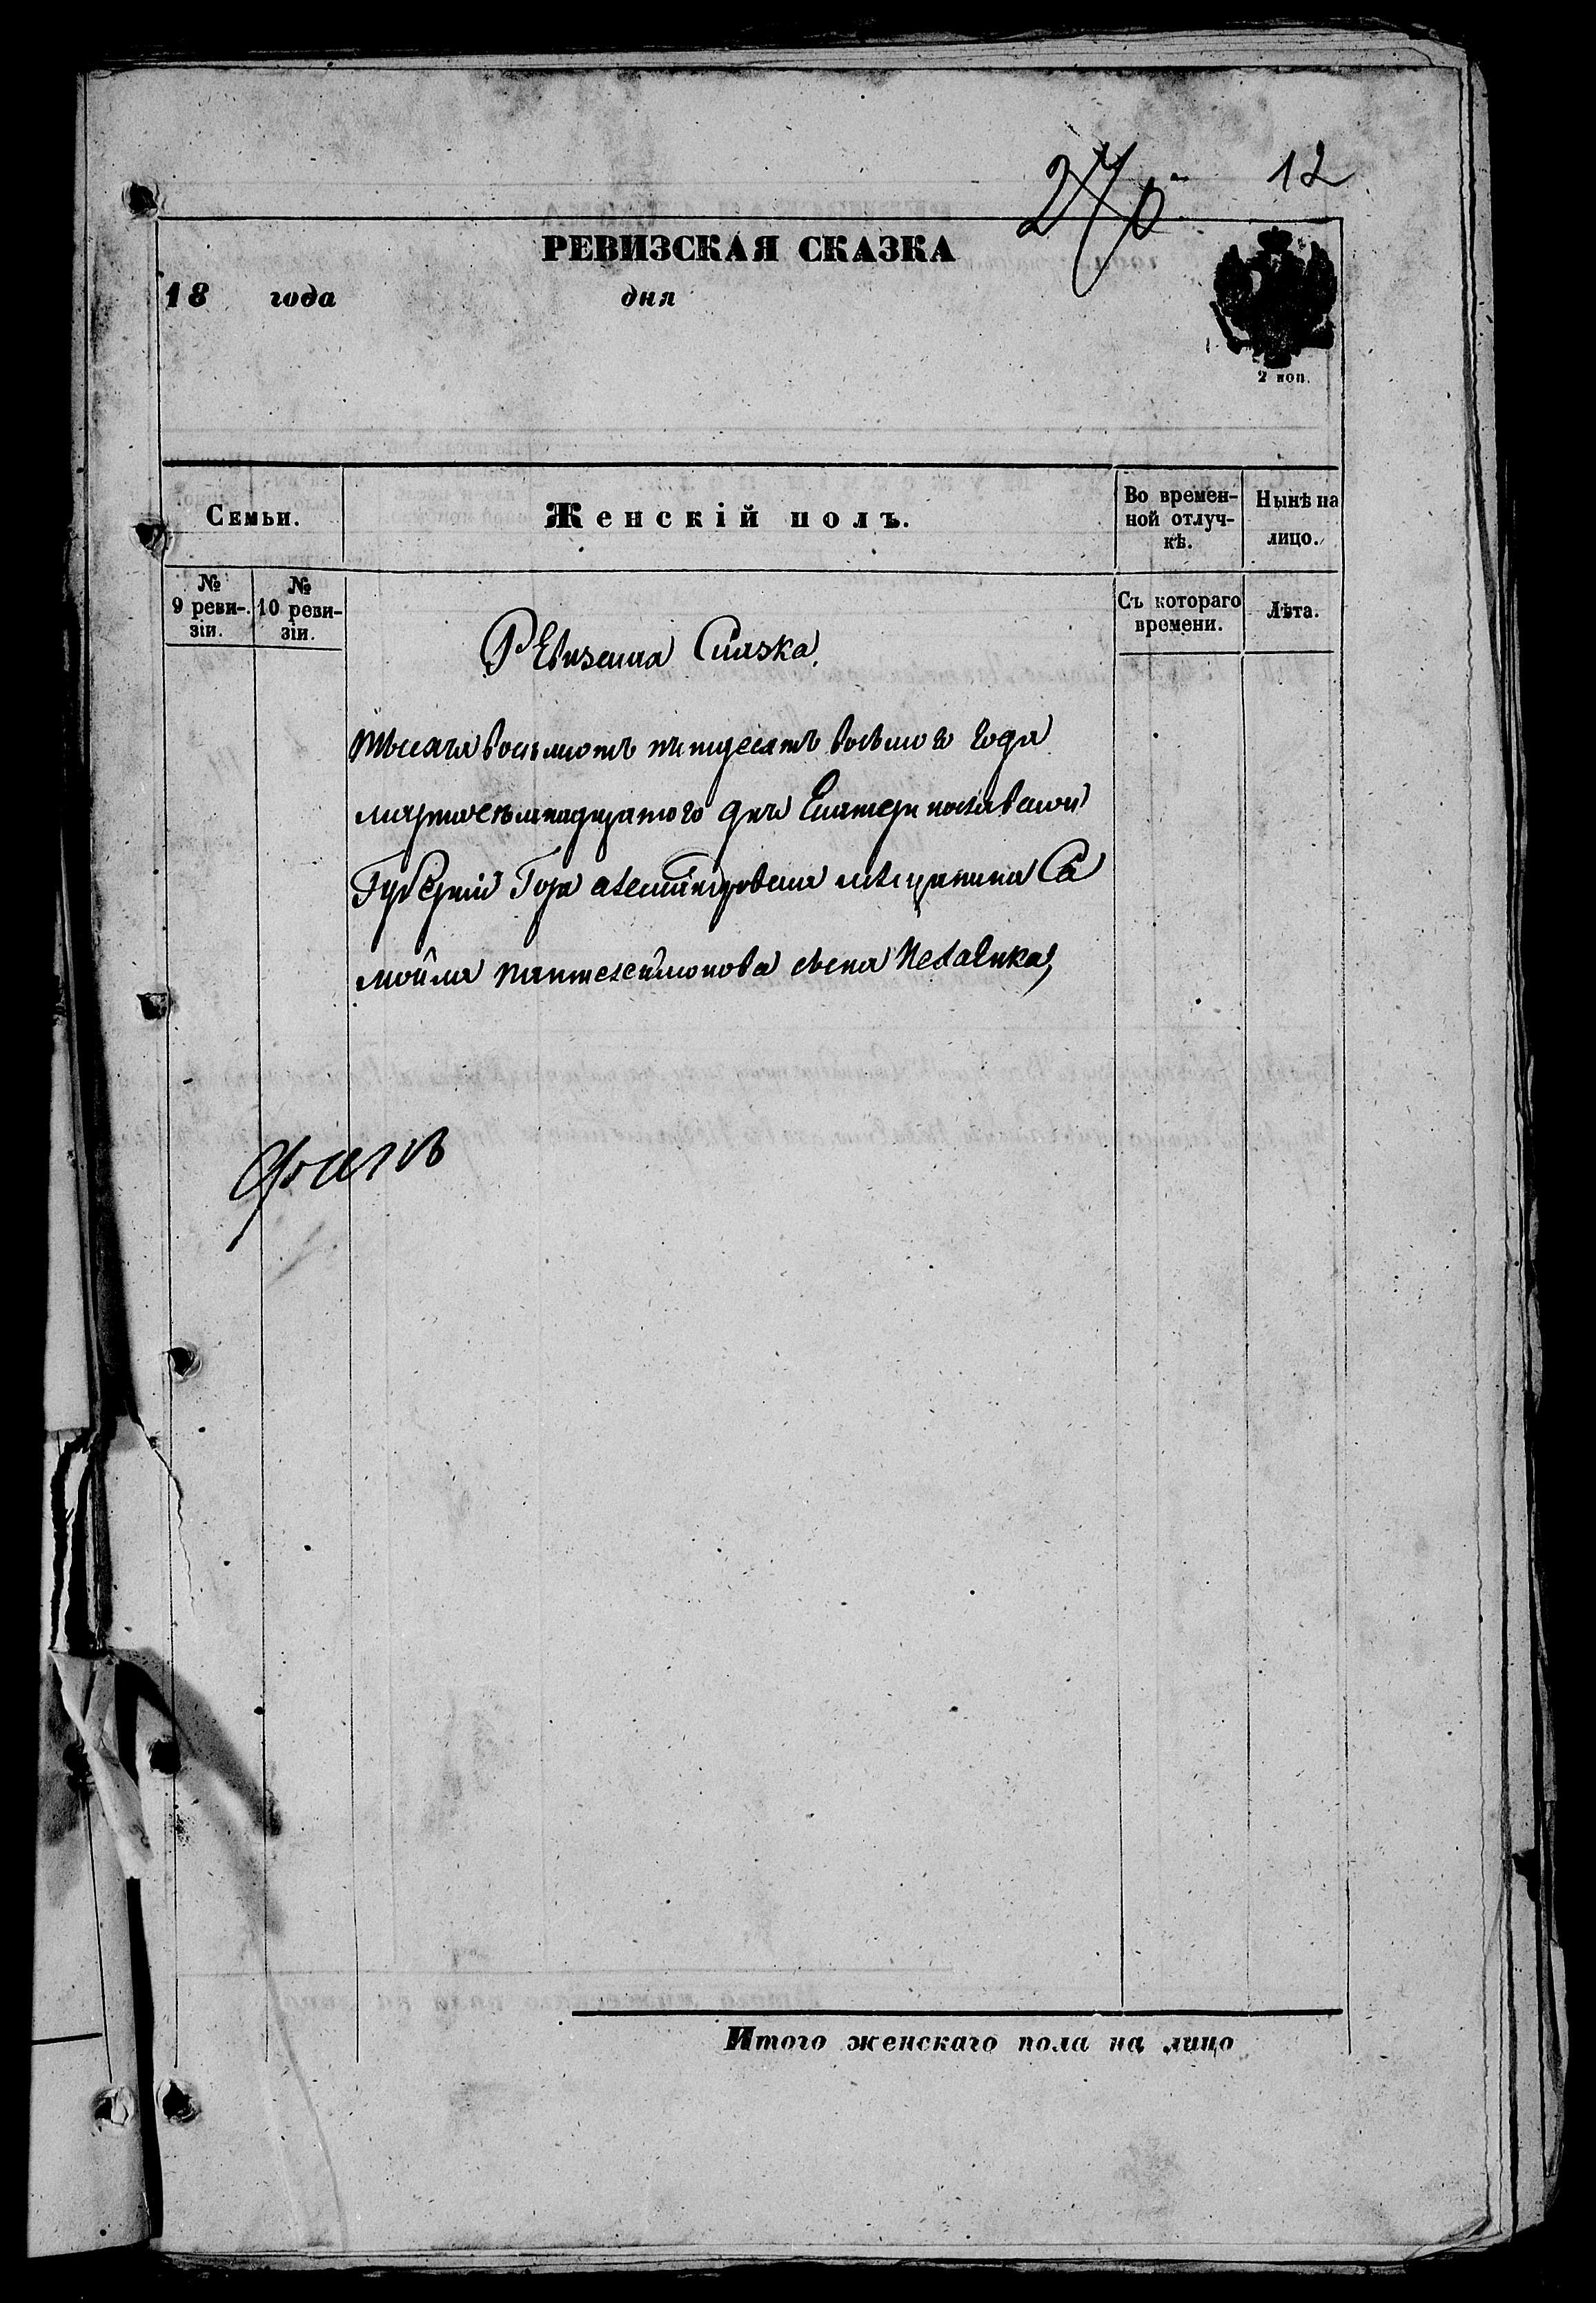 270 12
РЕВИЗСКАЯ СКАЗКА
18 года дня
2 коп.
Семьи.
Женскій полъ.
Во времен-
ной отлуч-
кѣ.
Нынѣ на
лицо.
№
9 реви-
зіи.
№
10 реви-
зіи.
Съ котораго
времени.
Лѣта.
Ревизская Сказка
тысяча восьмотъ пятдесятъ восьмого года
марта семнадцатого дня Екатеринославской
Губерніи Города мещанина Са
мойла пантелеймонова сына
Итого женскаго пола на лицо